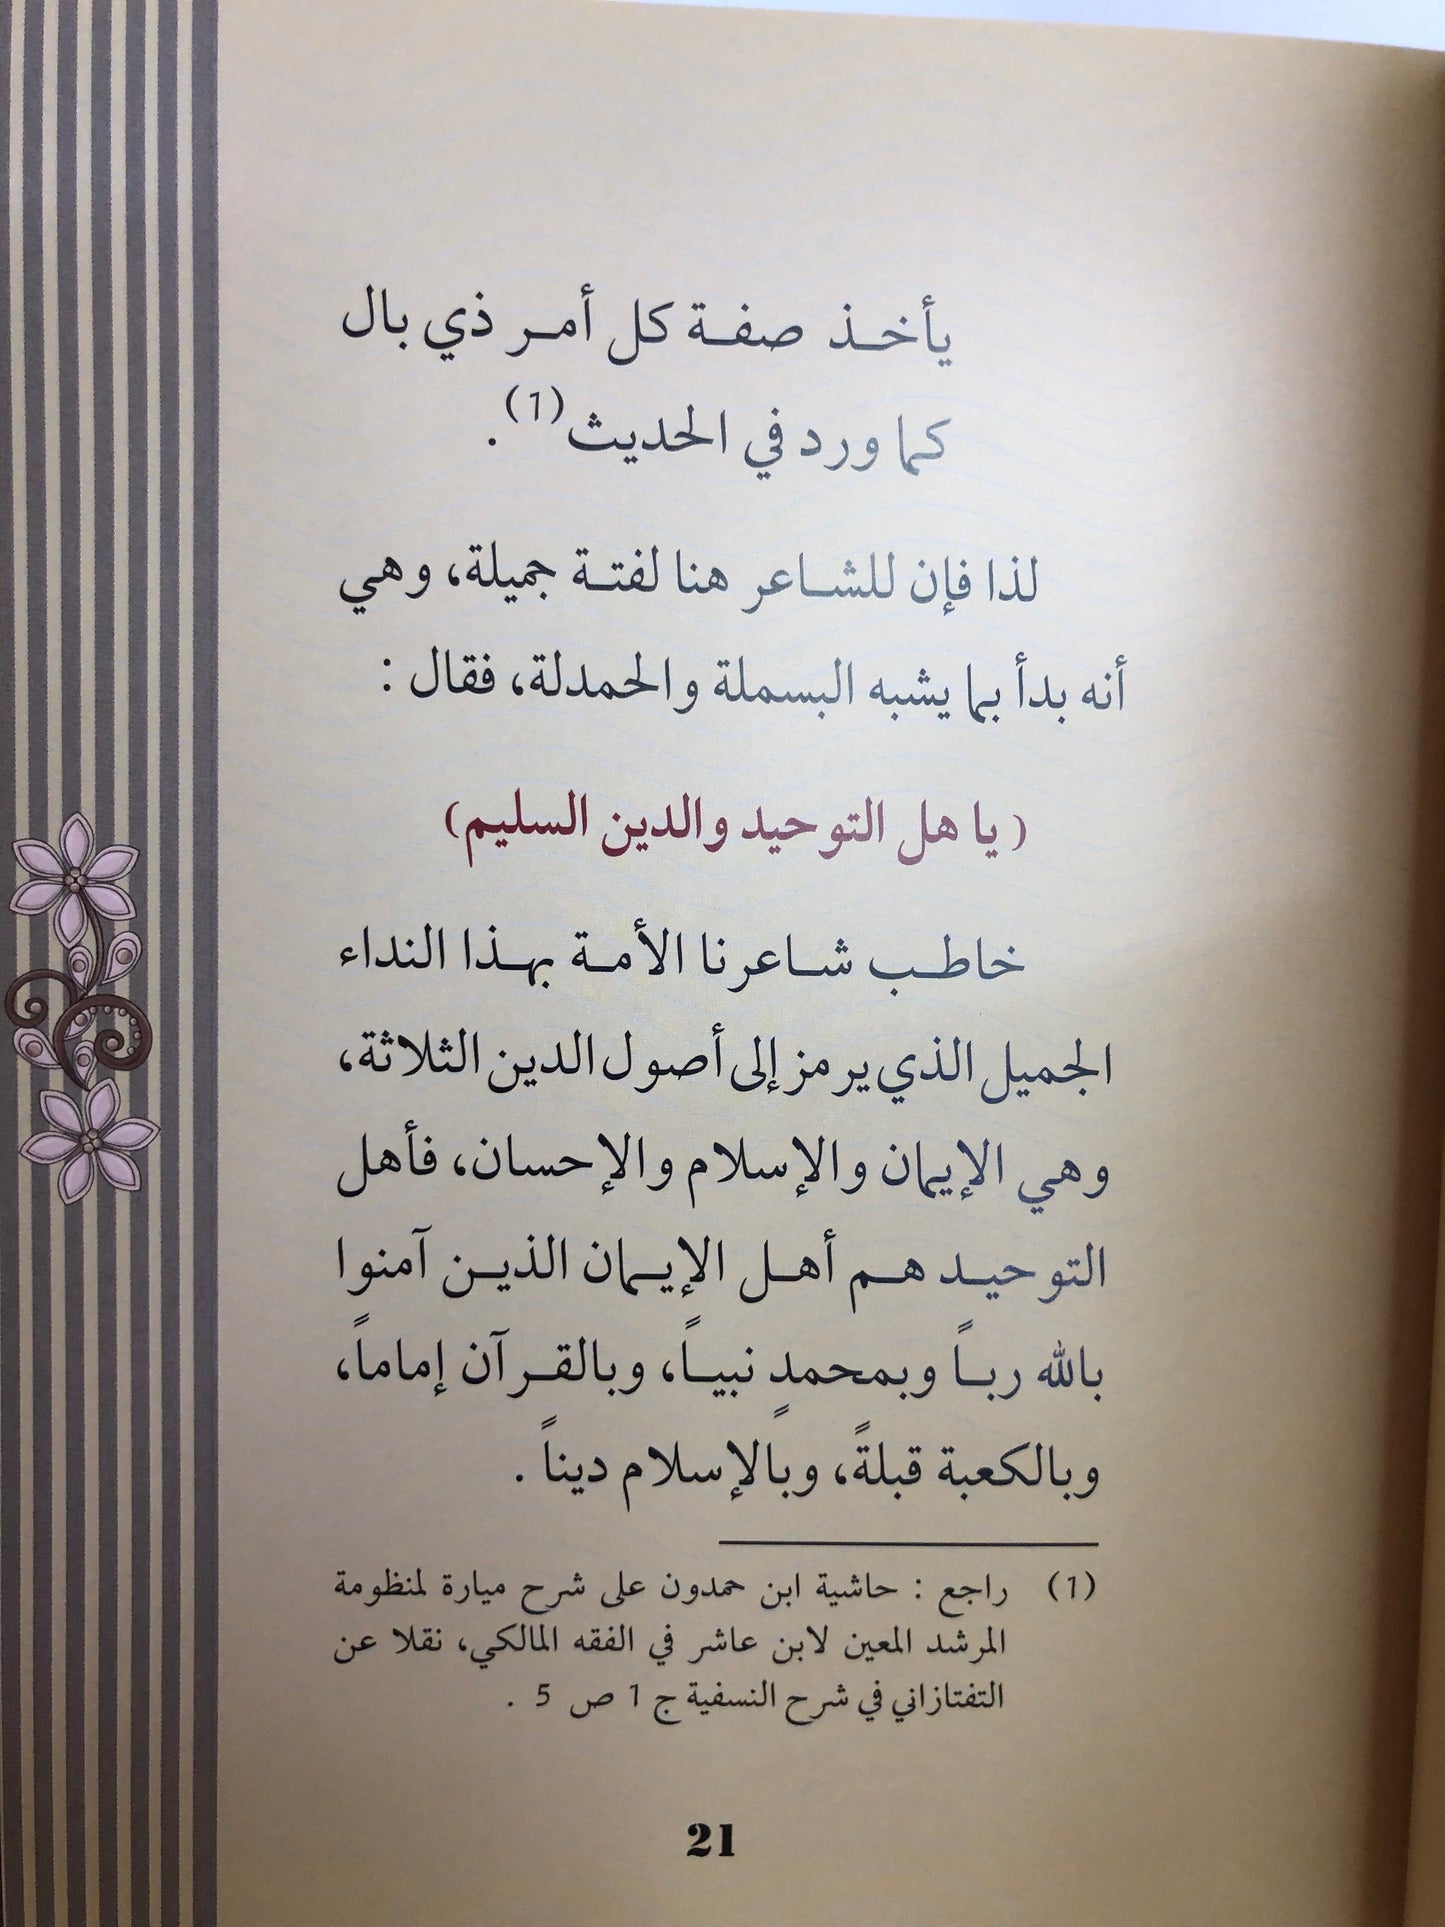 يأخذ صفة كل أمر ذي بال
كما ورد في الحديث(1).
لذا فإن للشاعر هنا لفتة جميلة، وهي
أنه بدأ بما يشبه البسملة والحمدلة، فقال :
( يا هل التوحيد والدين السليم)
خاطب شاعرنا الأمة بهذا النداء
الجميل الذي يرمز إلى أصول الدين الثلاثة،
وهي الإيمان والإسلام والإحسان، فأهل
التوحيد هم أهل الإيمان الذين آمنوا
بالله رباً وبمحمدٍ نبياً، وبالقرآن إماماً،
وبالكعبة قبلةً، وبالإسلام ديناً .
(1) راجع : حاشية ابن حمدون على شرح ميارة لمنظومة
المرشد المعين لابن عاشر في الفقه المالكي، نقلا عن
التفتازاني في شرح النسفية ج 1 ص 5 .
21